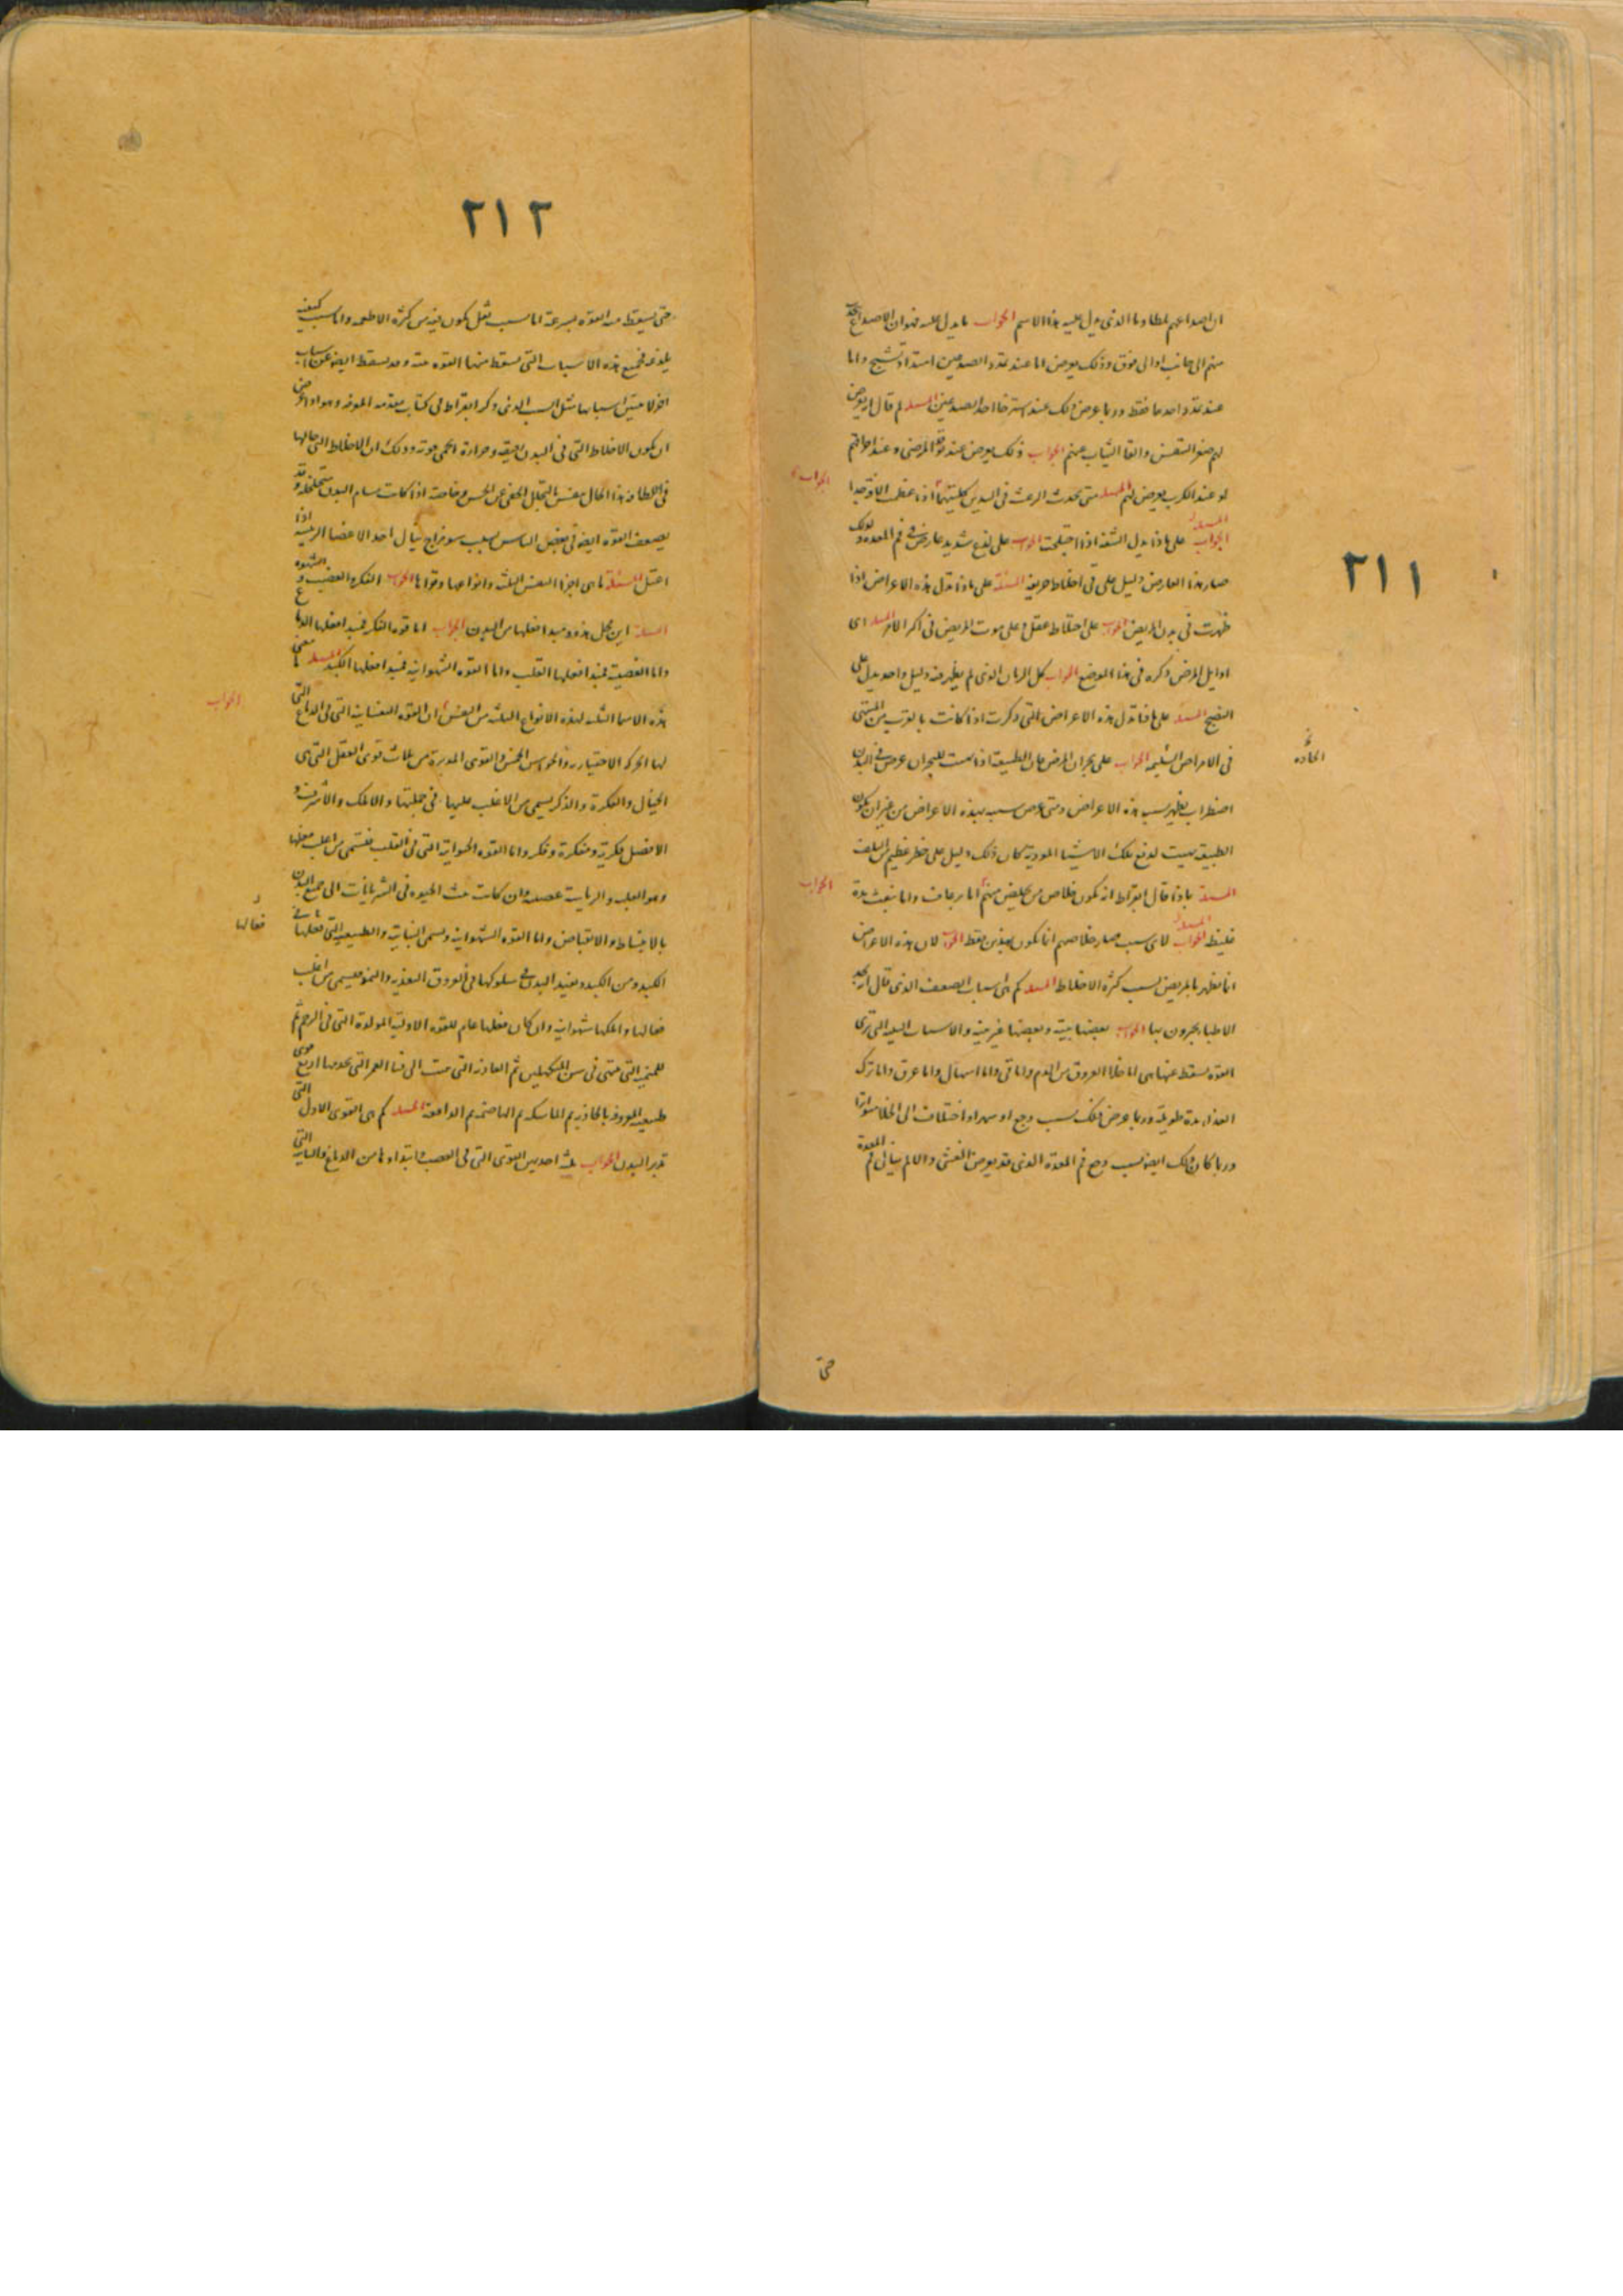 ٢١١
ان اصداغهم لمطاوما الذى يدل عليه هذا الاسم الجواب ما يدل عليه فهو ان الاصداغ
منهم الى جانب او الى فوق وذلك يعرض اما عند تمدد الصدغين امتداد تشنج واما
عند تمدد احدهما فقط وربما عرض ذلك عند استرخا احد الصدغين المسئلة لم قال
لهم صغر التنفس والقا الثياب عنهم الجواب ذلك يعرض عند المرضى وعند
او عند الكرب يعرض لهم المسئلة متى تحدث الرعشة فى اليدين كلتيهما
الجواب
المسئلة
على ماذا يدل الشفة اذا اختلجت الجواب على لذع شديد عارض فى فم المعدة
صار هذا العارض دليل على قى اخلاط حريفة المسئلة على ماذا تدل هذه الاعراض اذا
ظهرت فى بدن المريض الجواب على اختلاط عقل وعلى موت المريض فى اكثر الامر المسئلة اى
اوايل المرض ذكره فى هذا الموضع الجواب كل الزمان الذى لم يظهر فيه دليل واحد يدل على
النضج المسئلة على ماذا تدل هذه الاعراض التى ذكرت اذا كانت بالقرب من المنتهى
فى الامراض السليمة الجواب على بحران المرض فان الطبيعة اذا للبحران عرض فى البدن
الحاده
اضطراب يظهر بسببه هذه الاعراض ومتى عرض بسببه هذه الاعراض من غير ان يكون
الطبيعة لدفع تلك الاشيا الموذية كان ذلك دليل على خطر عظيم من التلف
المسئلة بماذا قال ابقراط انه يكون خلاص من يخلص منهم اما برعاف واما بنفث مدة
الجواب
غليظة المسئلة لاى سبب صار خلاصهم انما يكون بهذين فقط الجواب لان هذه الاعراض
انما تظهر بالمريض بسبب كثرة الاخلاط المسئلة كم هى اسباب الضعف الذى قال
الاطبا يخبرون بها الجواب بعضها بينة وبعضها غير بينة والاسباب البينة التى ترى
القوة تسقط عنها هى اما خلا العروق من الدم واما قى واما اسهال واما عرق واما ترك
الغذا مدة طويلة وربما عرض ذلك بسبب وجع او سهر او اختلاف الى الخلا متواترا
وربما كان ذلك ايضه بسبب وجع فم المعدة الذى قد يعرض الغشى والالم ينال فم المعدة
حتى
٢١٢
حتى يسقط منه القوة بسرعة اما بسبب ثقل يكون فيه من كثرة الاطعمه واما بسبب كيفية
يلذعه فجميع هذه الاسباب التى تسقط منها القوة بتة وقد تسقط ايضه عن اسباب
اخر لا يتبين اسبابها مثل السبب الذى ذكره ابقراط فى كتاب تقدمه المعرفه وهو اذا
ان يكون الاخلاط التى فى البدن رقيقه وحرارة الحمى قوية وذلك ان الاخلاط التى حالها
فى اللطافة هذا الحال تفنى بالتحلل الخفى عن الحس وخاصة اذا كانت مسام البدن متخلخلة وقد
يضعف القوة ايضه فى بعض الناس بسبب سو مزاج ينال احد الاعضا الرئيسة اذا
اعتل المسئلة ما هى اجزا النفس الثلثة وانواعها وقواها الجواب الفكره الغضب والشهوه
المسئلة اين محل هذه ومبدا فعلها من البدن الجواب اما قوه الفكر فمبدا فعلها الدماغ
واما الغضبية فمبدا فعلها القلب واما القوه الشهوانيه فمبدا فعلها الكبد المسئلة ما معنى
هذه الاسما الثلثة لهذه الانواع الثلثه من النفس ان القوه النفسانيه التى فى الدماغ التى
الجواب
لها الحركه الاختياريه والحواس الخمس والقوى المدبرة من ثلاث قوى العقل التى هى
الخيال والفكرة والذكر يسمى من الاغلب عليها فى جملتها والاملك والاشرف و
الافضل فكرية ومفكرة وفكر واما القوه الحيوانية التى فى القلب فتسمى من اغلب فعلها
وهو الغلبه والرياسة غضبية وان كانت تبث الحيوه فى الشريانات الى جميع البدن
بالانبساط والانقباض واما القوه الشهوانيه وتسمى النباتية والطبيعيه التى فعلها فى
فعالها
الكبد ومن الكبد وتفيد البدن فى سلوكها فى العروق التغذيه والنمو فتسمى من اغلب
فعالها واملكها شهوانيه وان كان فعلها عام للقوه الاوليه المولدة التى فى الرحم ثم
للمنمية التى تنتهى فى سن المتكهلين ثم الغاذيه التى تمتد الى فنا العمر التى تخدمها اربع قوى
طبيعيه المعروفة بالجاذبه ثم الماسكه ثم الهاضمه ثم الدافعة المسئلة كم هى القوى الاول التى
تدبر البدن الجواب ثلثة احديهن القوى التى فى العصب وابتداوها من الدماغ والثانيه التى